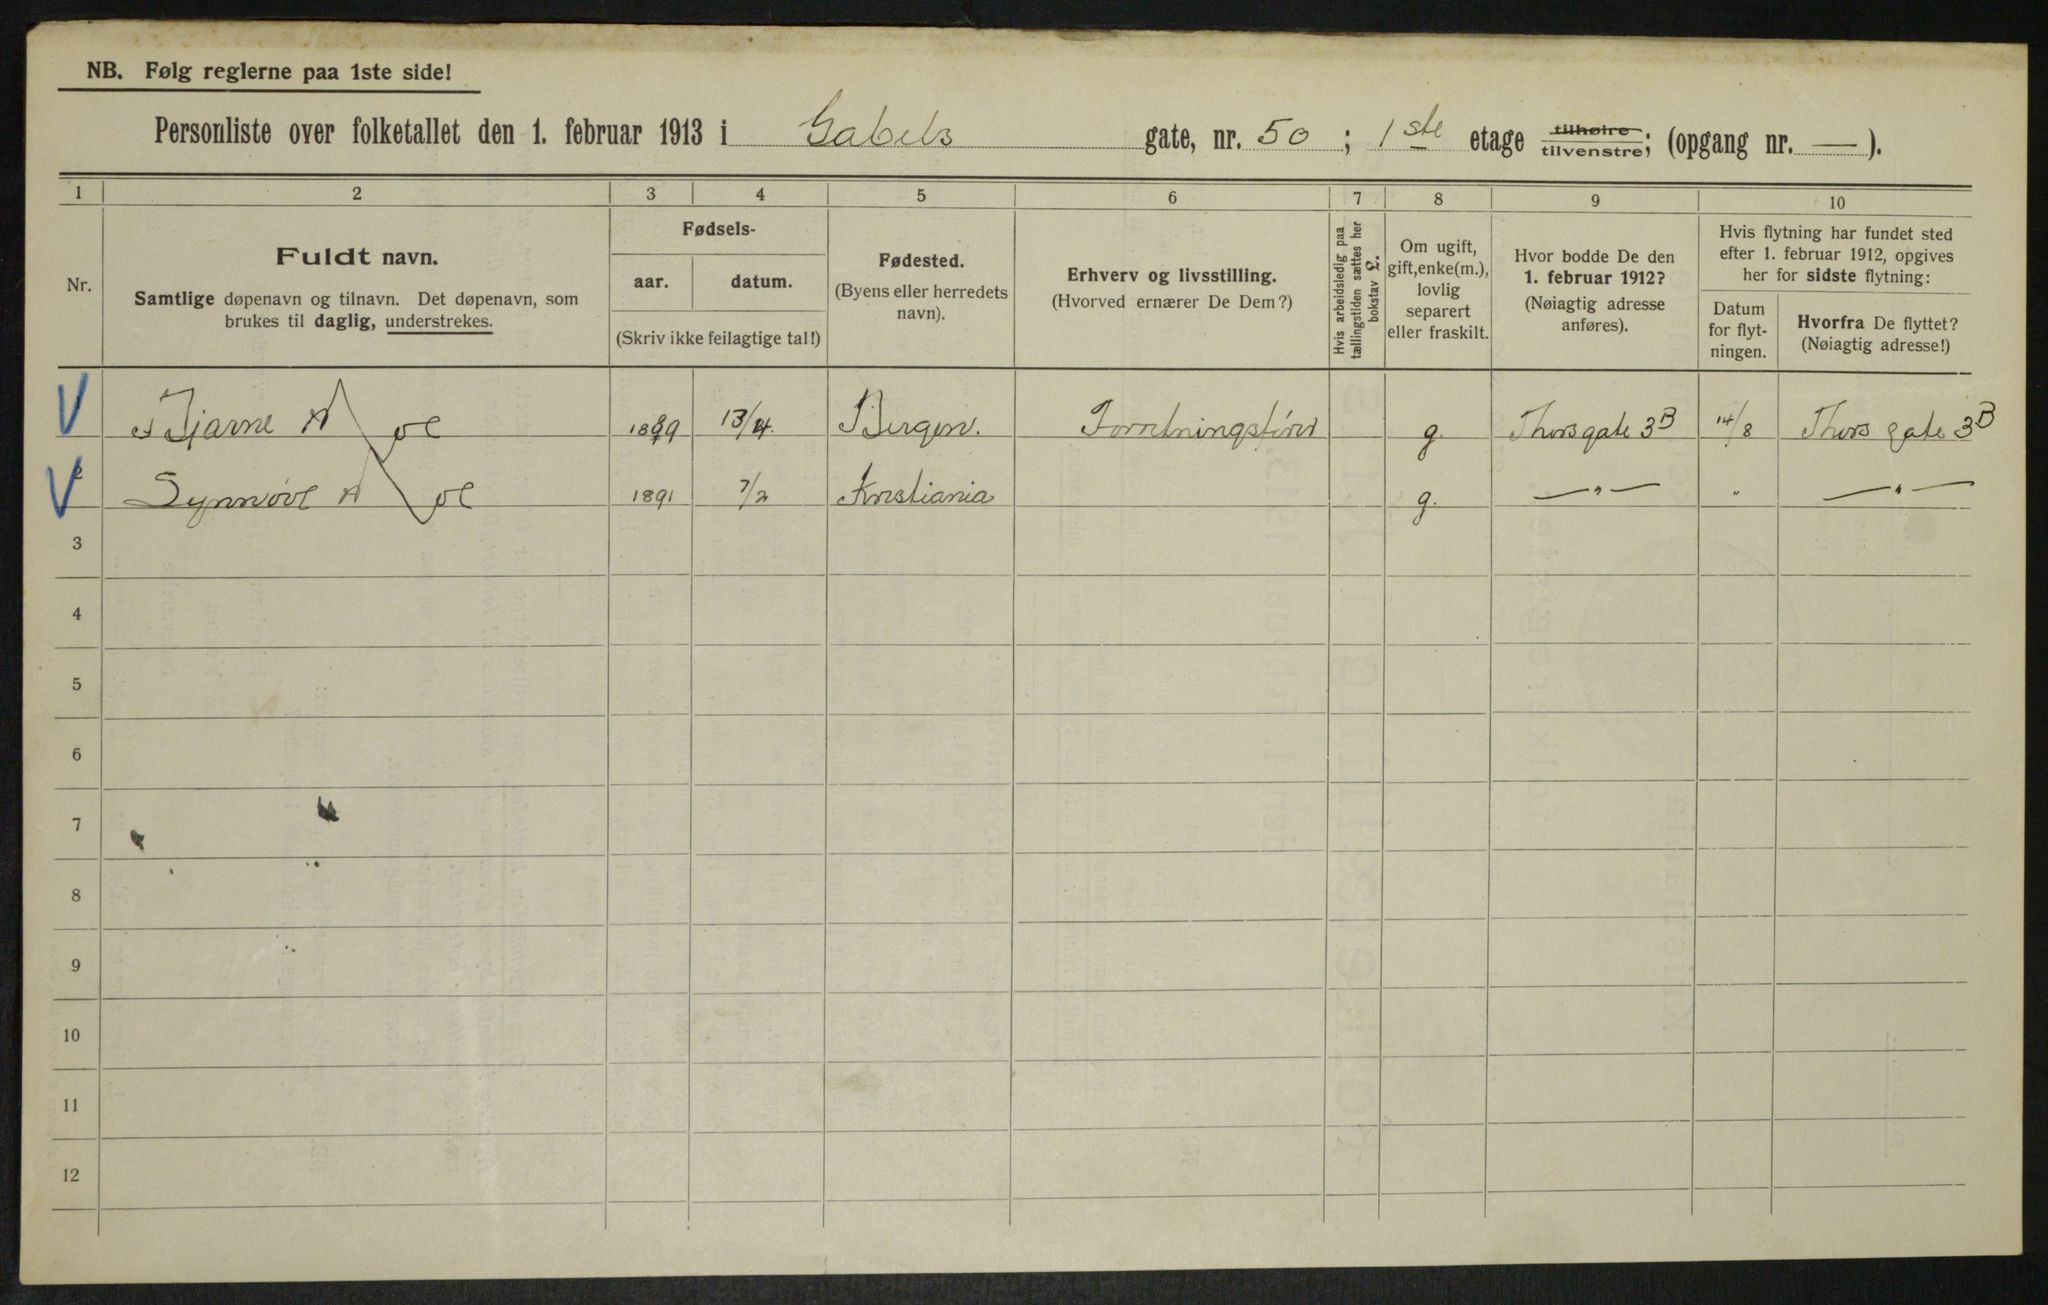 NB. Følg reglerne paa 1ste side!
Personliste over folketallet den 1. februar 1913 i Gabels gate, nr. 50 ; 1ste etage tilhøire tilvenstre; (opgang nr. — ).
1 2 3 4 5 6 7 8 9 10
Nr.
Fuldt navn.
Samtlige døpenavn og tilnavn. Det døpenavn, som
brukes til daglig, understrekes.
Fødsels-
aar. datum.
(Skriv ikke feilagtige tal!)
Fødested.
(Byens eller herredets
navn).
Erhverv og livsstilling.
(Hvorved ernærer De Dem?)
Hvis arbeidsledig paa
tællingstiden sættes her
bokstav L.
Om ugift,
gift,enke(m.),
lovlig
separert
eller fraskilt.
Hvor bodde De den
1. februar 1912?
(Nøiagtig adresse
anføres).
Hvis flytning har fundet sted
efter 1. februar 1912, opgives
her for sidste flytning:
Datum
for flyt-
ningen.
Hvorfra De flyttet?
(Nøiagtig adresse!)
Bjarne 1889 13/4. Bergen. Forretningsfører g. Thorsgate 3B 14/8 Thors gate 3B
2 Synnøve 1891 7/2 Kristiania g. —"— " —"—
3
4
5
6
7
8
9
10
11
12